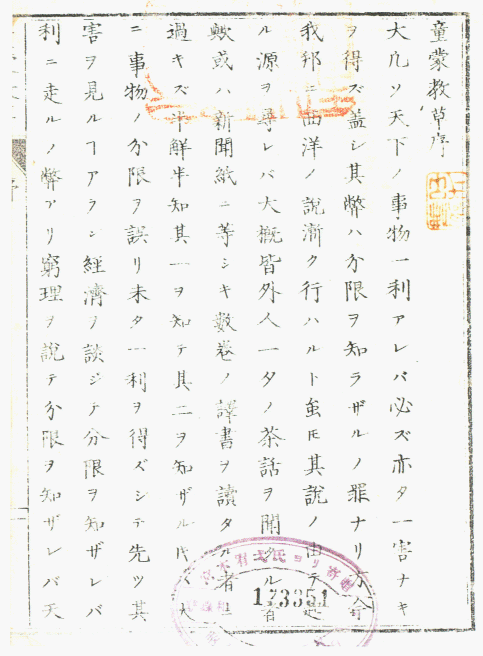 童蒙教草序
大凡ソ天下ノ事物一利アレバ必ズ亦タ一害ナキ
ヲ得ズ蓋シ其弊ハ分限ヲ知ラザルノ罪ナリ方今
我邦ニ西洋ノ說漸ク行ハルト虽𪜈其說ノ由テ
ル源ヲ尋レバ大概皆外人一夕ノ茶話ヲ聞タル者
歟或ハ新聞紙ニ等シキ數卷ノ譯書ヲ讀タル者
過キズ半解半知其一ヲ知テ其二ヲ知ザル
ニ事物ノ分限ヲ誤リ未タ一利ヲ得ズシテ先ツ其
害ヲ見ルヿアラン經濟ヲ談ジテ分限ヲ知ザレバ
利ニ走ルノ弊アリ窮理ヲ說テ分限ヲ知ザレバ天
173351